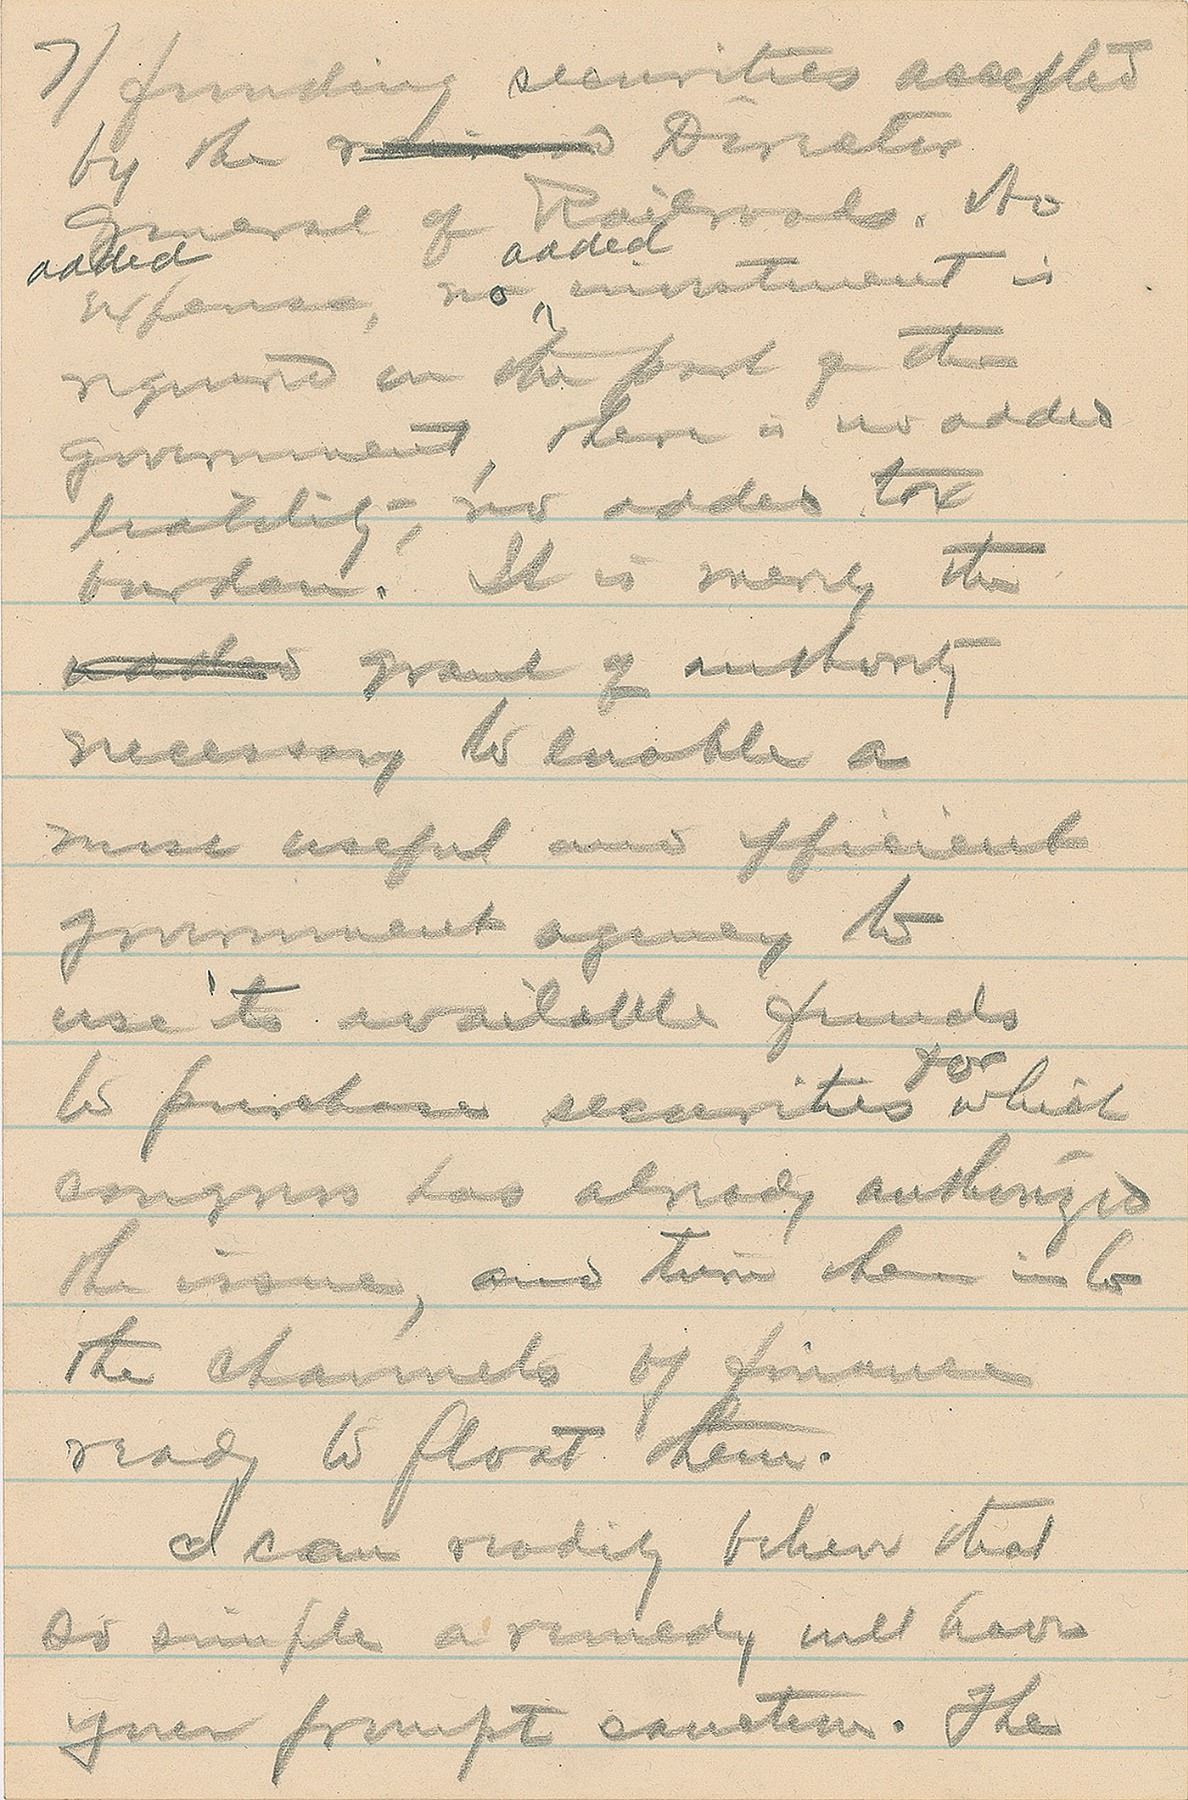 7/ funding securities accepted
by the Director
General of Railroads. No
added added
expense, no investment is
required on the part of the
government, there is no added
liability, no added tax
burden. It is merely the
added grant of authority
necessary to enable a
most useful and efficient
government agency to
use its available funds
to purchase securities for which
congress has already authorized
the issue, and turn them into
the channels of finance
ready to float them.
I can readily believe that
so simple a remedy will have
your prompt sanction. The